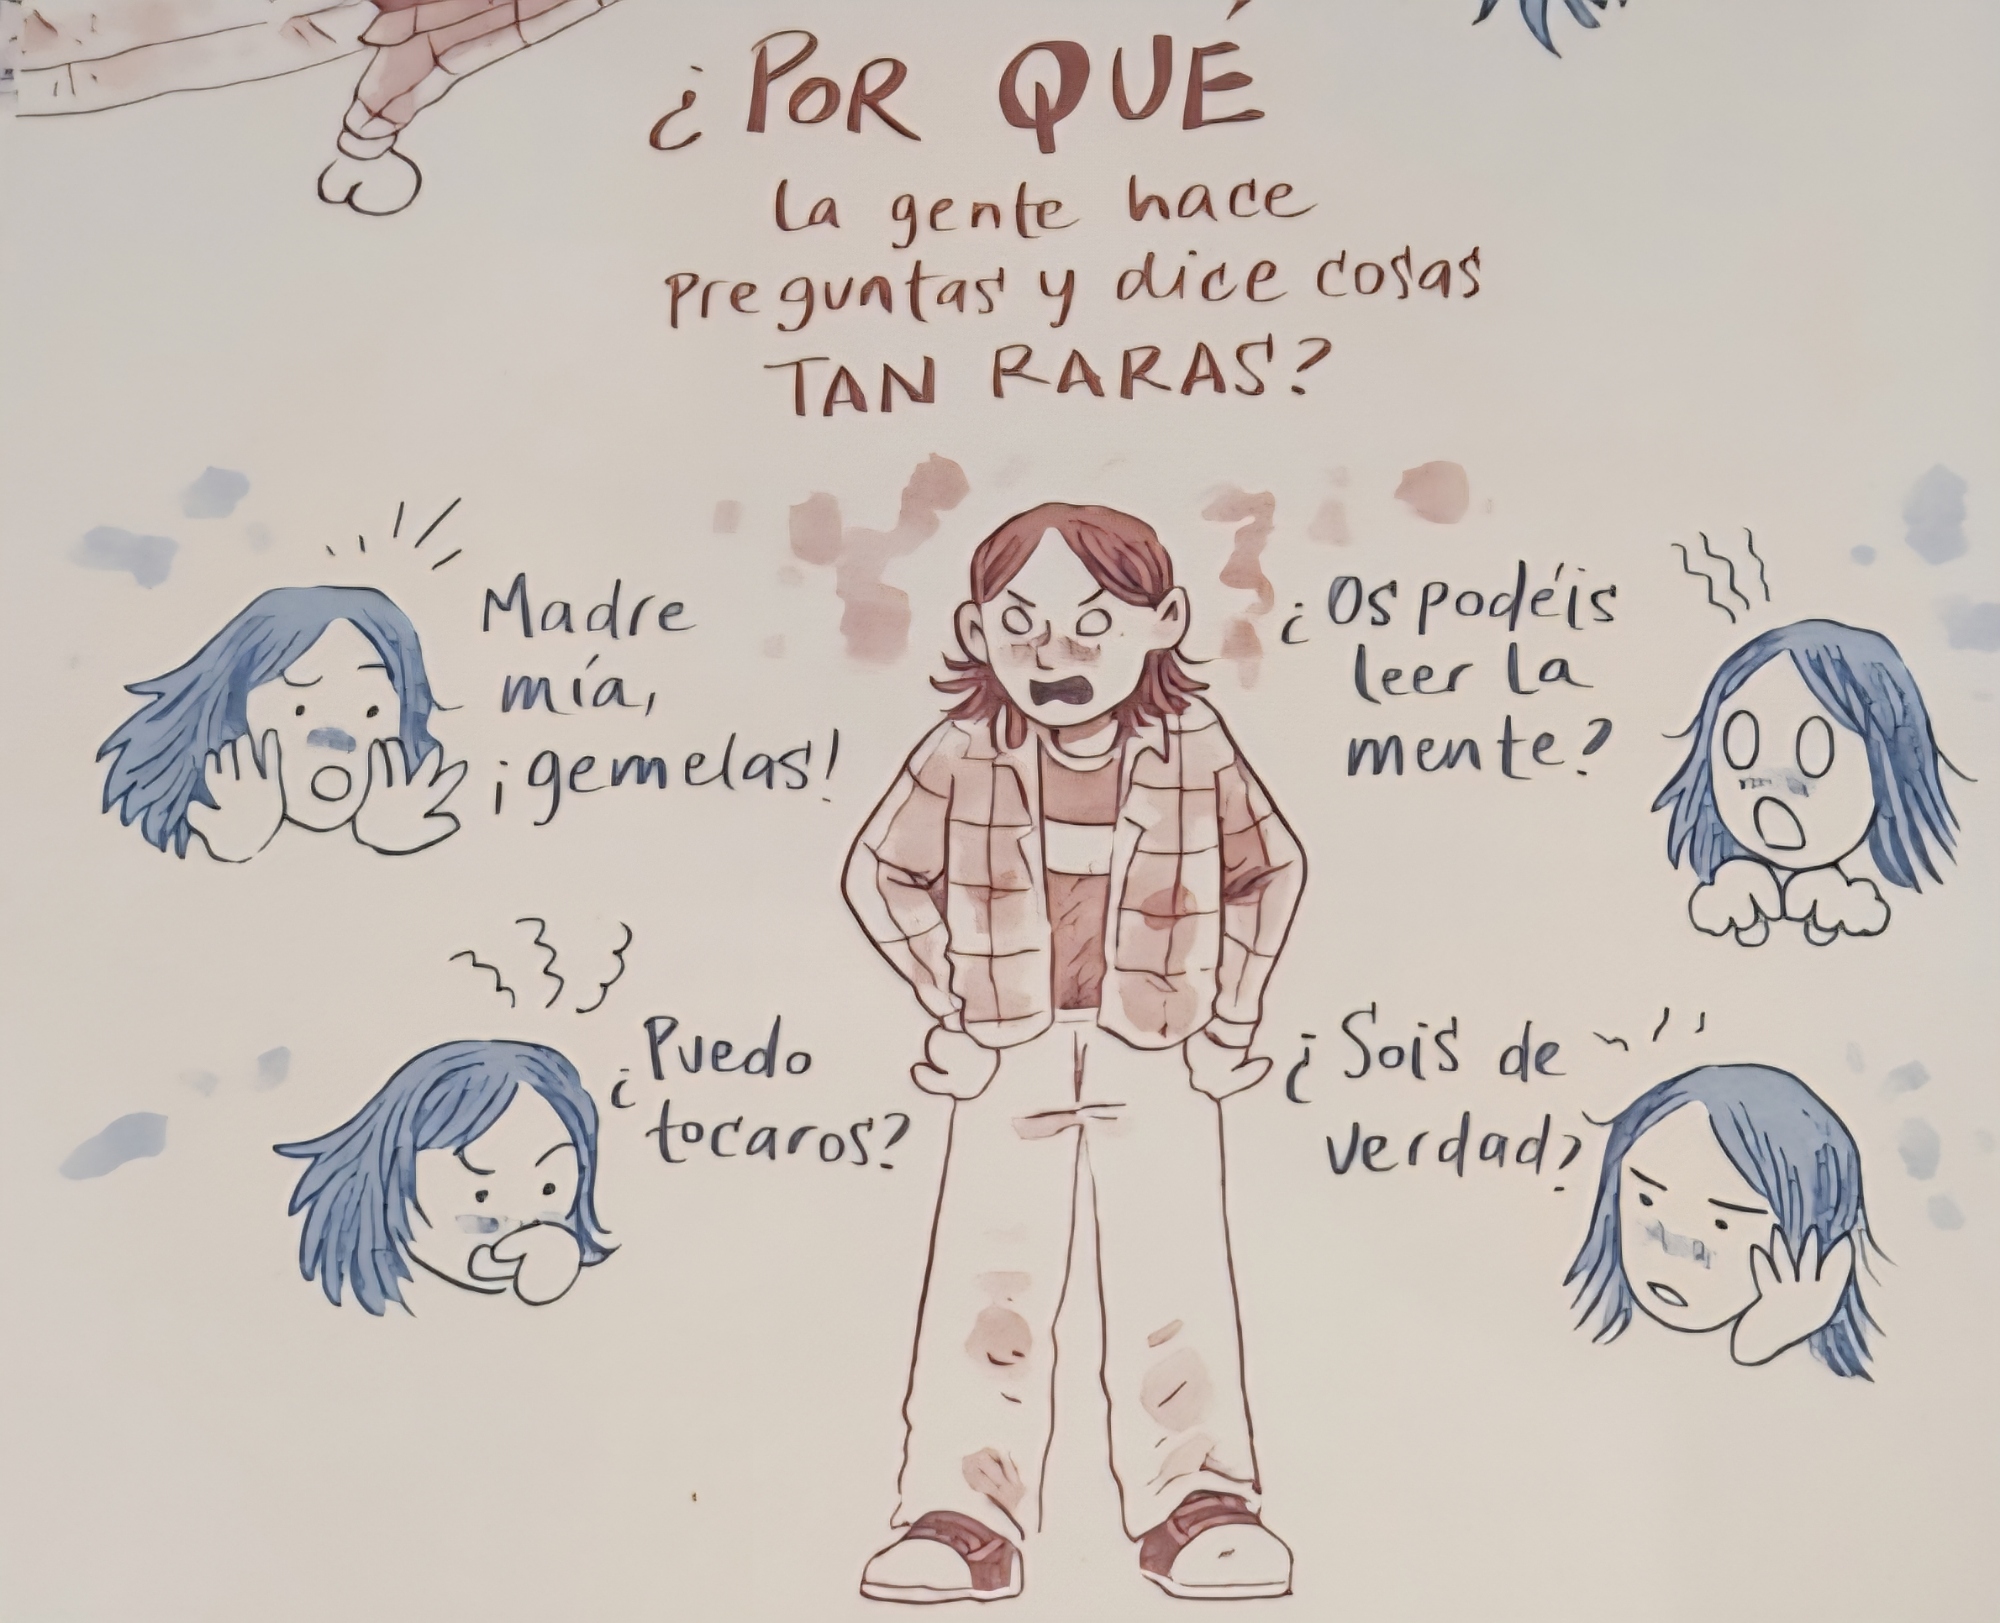 ¿POR QUÉ
la gente hace
preguntas y dice cosas
TAN RARAS?
Madre
mía,
¡gemelas!
¿Os podéis
leer la
mente?
¿Puedo
tocaros?
¿Sois de
verdad?